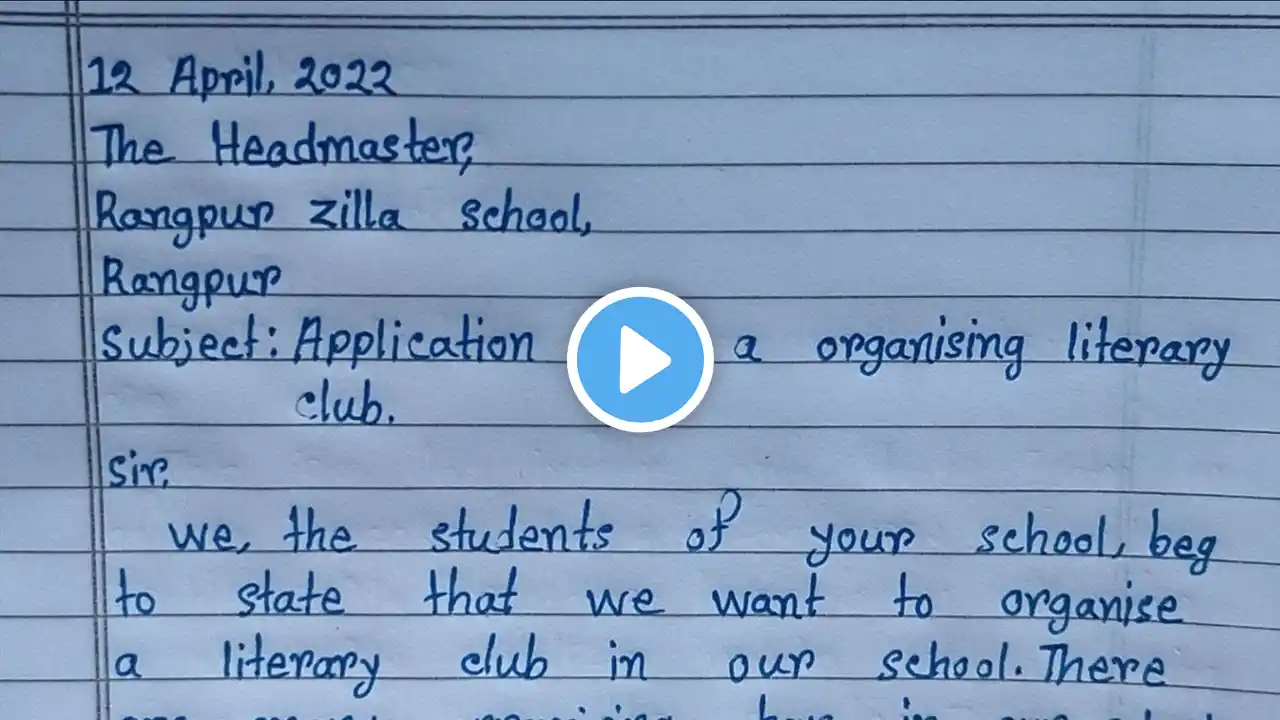 12 April, 2022
The Headmaster,
Rangpur zilla school,
Rangpur
Subject: Application a organising literary
club.
Sir,
we, the students of your school, beg
to state that we want to organise
a literary club in our school. There